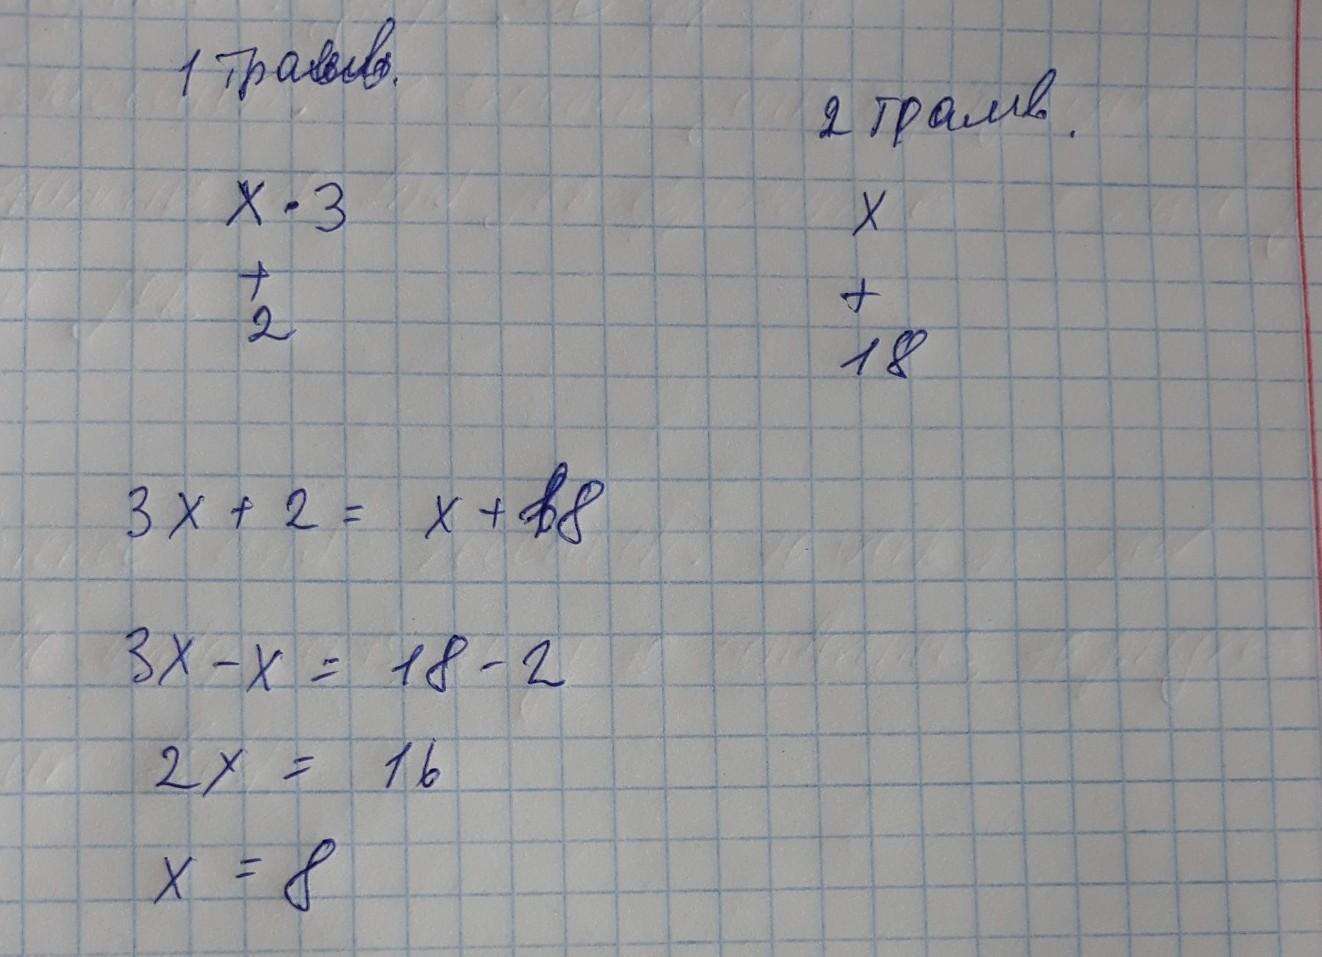 1 трамв.
2 трамв.
x · 3
+
2
x
+
18
3x + 2 = x + 18
3x - x = 18 - 2
2x = 16
x = 8